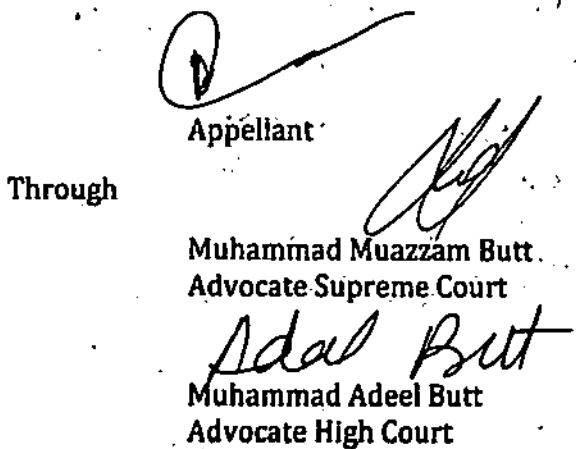 Appellant
Through
Muhammad Muazzam Butt
Advocate Supreme Court
Adal Butt
Muhammad Adeel Butt
Advocate High Court